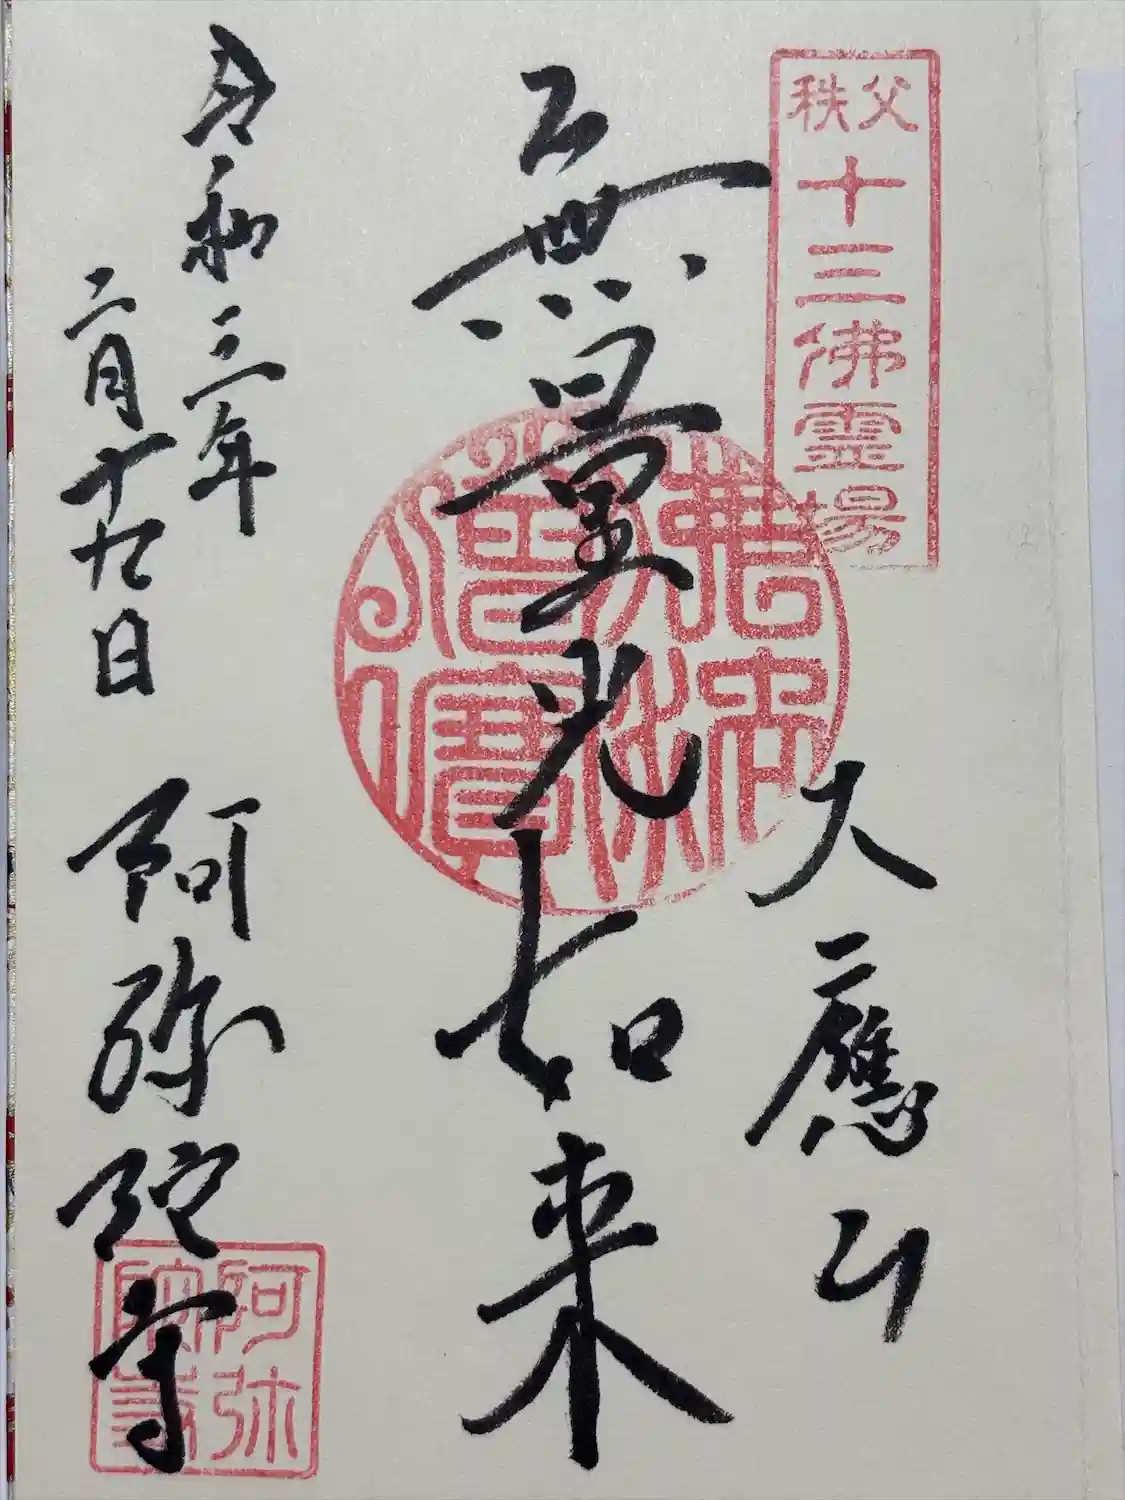 秩父
十三佛霊場
大應山
無量光如来
令和三年
二月十九日
阿弥陀寺
阿弥
陀寺